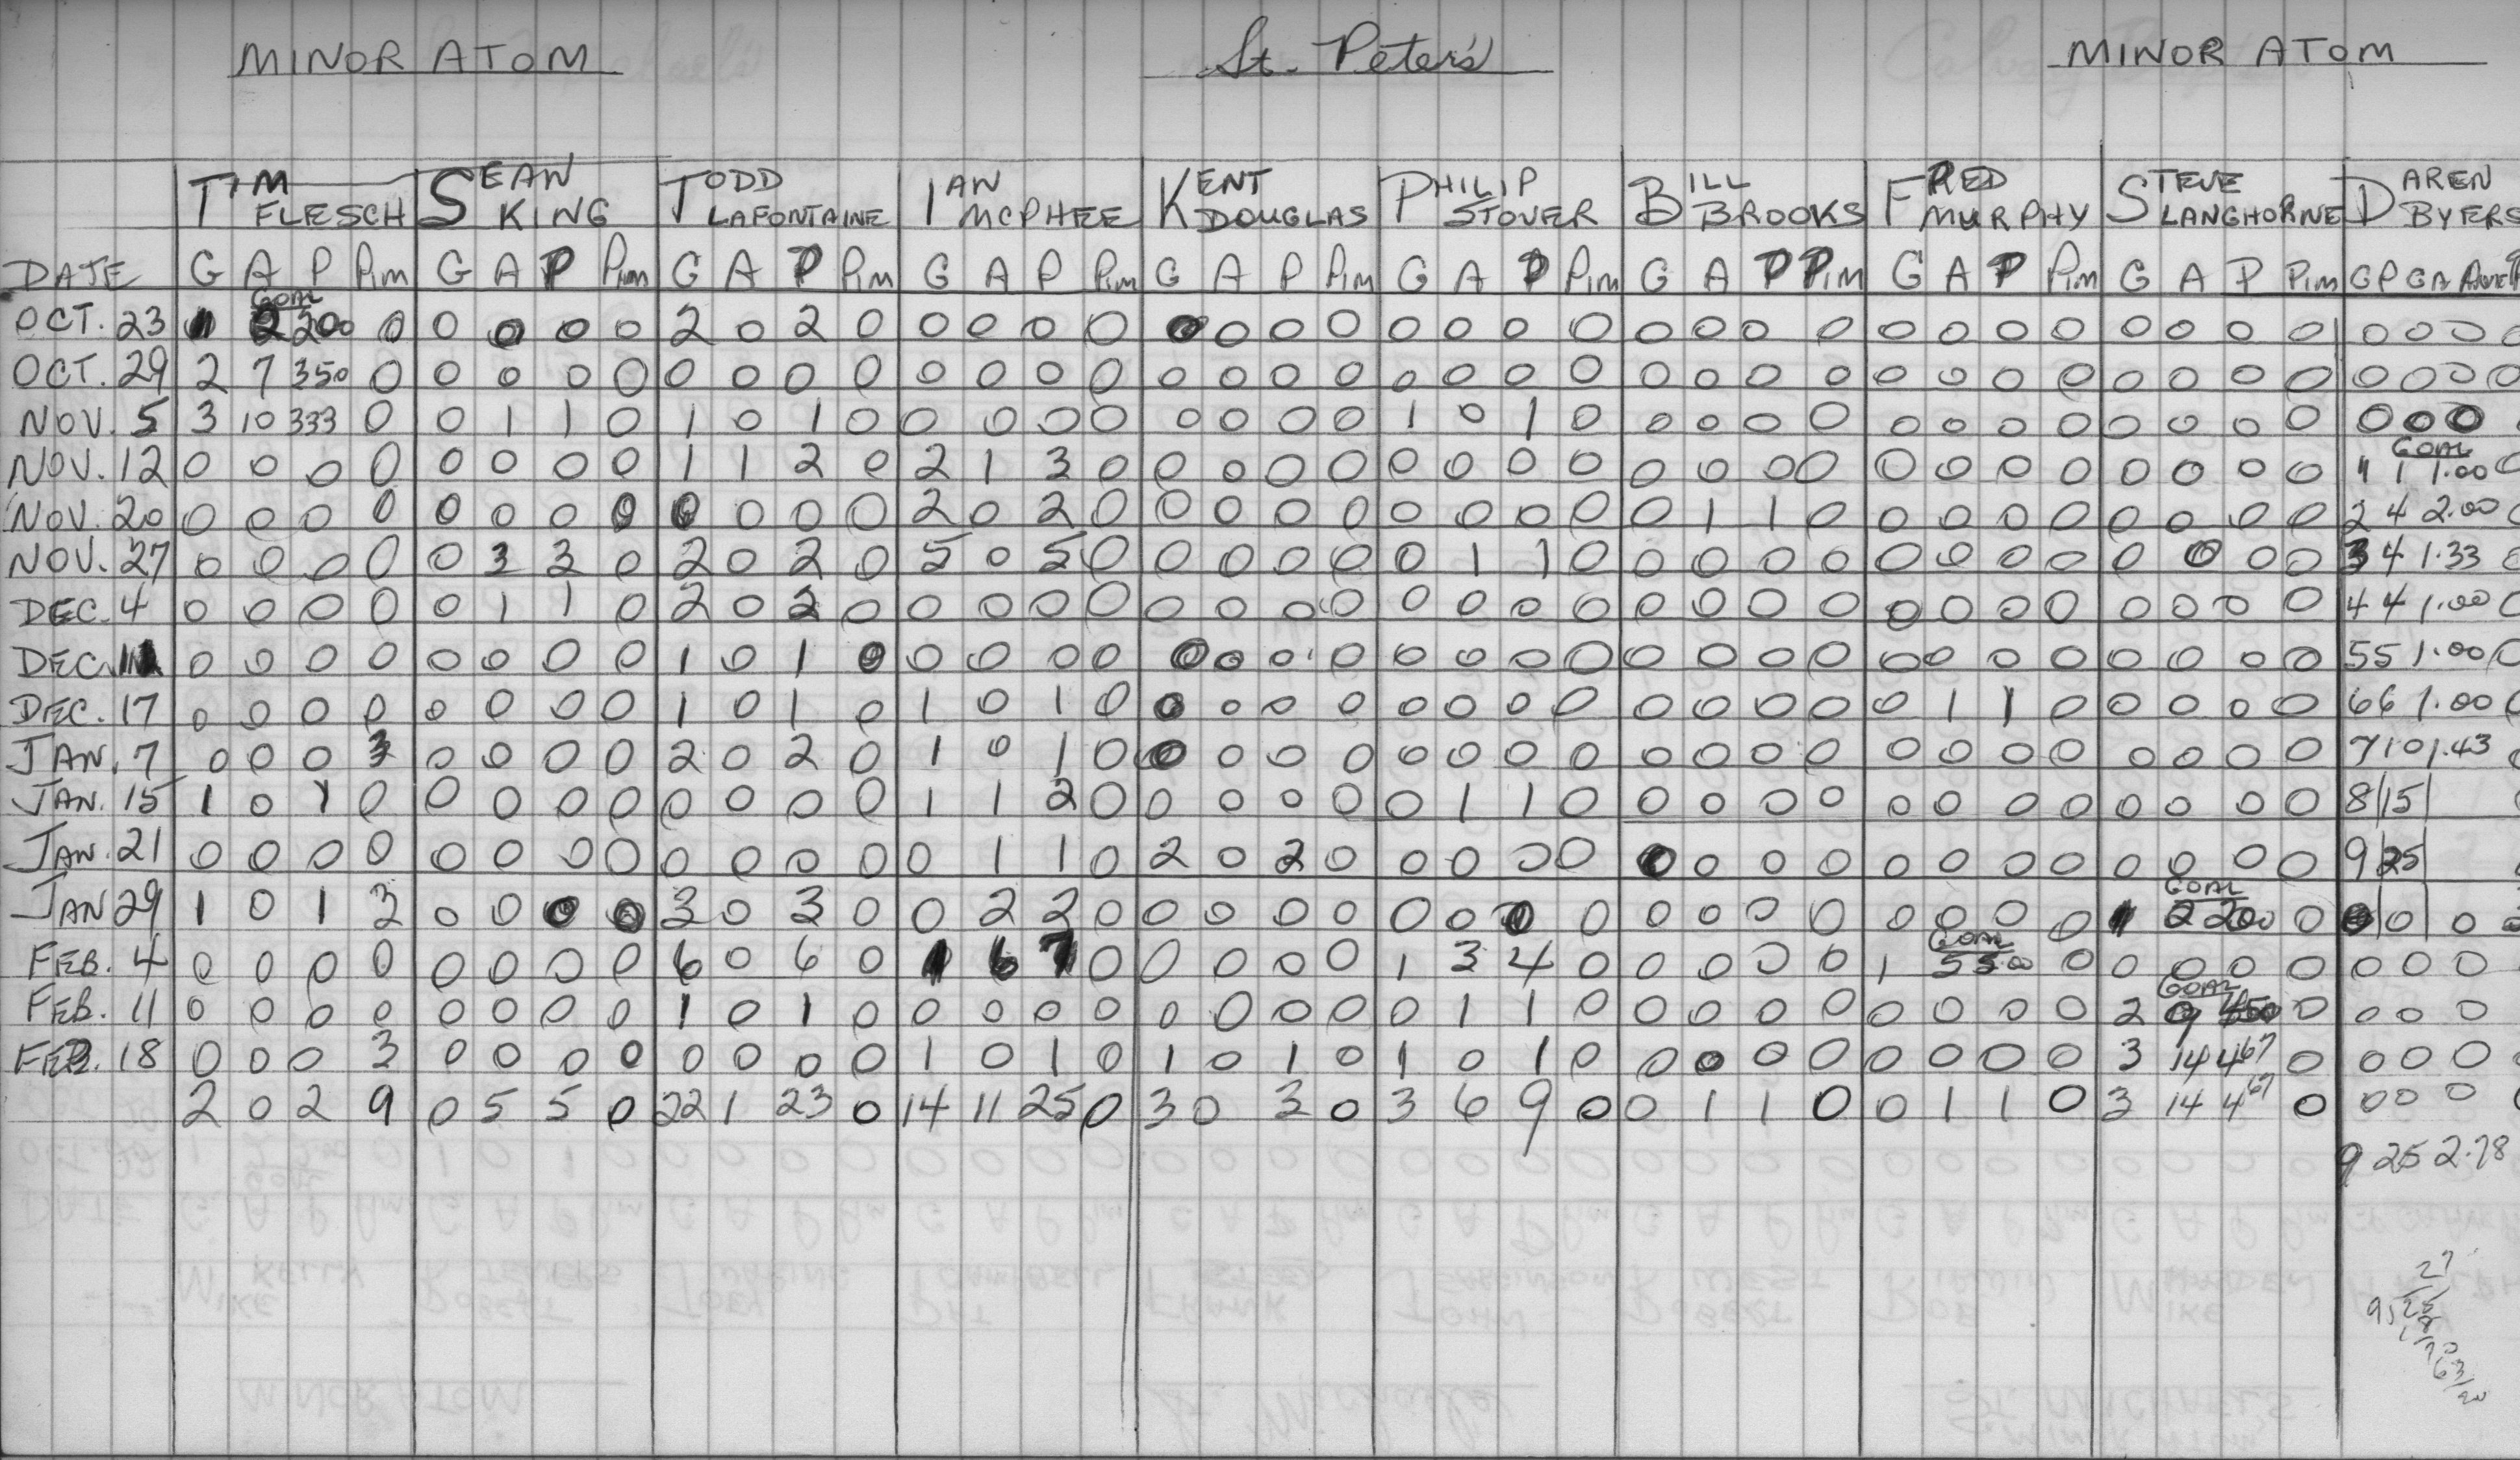 MINOR ATOM St. Peter's MINOR ATOM
TIM FLESCH SEAN KING TODD LAFONTAINE IAN MCPHEE KENT DOUGLAS PHILIP STOVER BILL BROOKS FRED MURPHY STEVE LANGHORNE DAREN BYERS
DATE G A P Pim G A P Pim G A P Pim G A P Pim G A P Pim G A P Pim G A P Pim G A P Pim G A P Pim GP GA Ave
GOAL
OCT. 23 1 2 200 0 0 0 0 0 2 0 2 0 0 0 0 0 0 0 0 0 0 0 0 0 0 0 0 0 0 0 0 0 0 0 0 0 0 0 0 0
OCT. 29 2 7 350 0 0 0 0 0 0 0 0 0 0 0 0 0 0 0 0 0 0 0 0 0 0 0 0 0 0 0 0 0 0 0 0 0 0 0 0 0
NOV. 5 3 10 333 0 0 1 1 0 1 0 1 0 0 0 0 0 0 0 0 0 1 0 1 0 0 0 0 0 0 0 0 0 0 0 0 0 0 0 0
GOAL
NOV. 12 0 0 0 0 0 0 0 0 1 1 2 0 2 1 3 0 0 0 0 0 0 0 0 0 0 0 0 0 0 0 0 0 0 0 0 0 1 1 1.00 0
NOV. 20 0 0 0 0 0 0 0 0 0 0 0 0 2 0 2 0 0 0 0 0 0 0 0 0 0 1 1 0 0 0 0 0 0 0 0 0 2 4 2.00 0
NOV. 27 0 0 0 0 0 3 3 0 2 0 2 0 5 0 5 0 0 0 0 0 0 1 1 0 0 0 0 0 0 0 0 0 0 0 0 0 3 4 1.33 0
DEC. 4 0 0 0 0 0 1 1 0 2 0 2 0 0 0 0 0 0 0 0 0 0 0 0 0 0 0 0 0 0 0 0 0 0 0 0 0 4 4 1.00 0
DEC. 11 0 0 0 0 0 0 0 0 1 0 1 0 0 0 0 0 0 0 0 0 0 0 0 0 0 0 0 0 0 0 0 0 0 0 0 0 5 5 1.00 0
DEC. 17 0 0 0 0 0 0 0 0 1 0 1 0 1 0 1 0 0 0 0 0 0 0 0 0 0 0 0 0 0 1 1 0 0 0 0 0 6 6 1.00 0
JAN. 7 0 0 0 3 0 0 0 0 2 0 2 0 1 0 1 0 0 0 0 0 0 0 0 0 0 0 0 0 0 0 0 0 0 0 0 0 7 10 1.43 0
JAN. 15 1 0 1 0 0 0 0 0 0 0 0 0 1 1 2 0 0 0 0 0 0 1 1 0 0 0 0 0 0 0 0 0 0 0 0 0 8 15 0
JAN. 21 0 0 0 0 0 0 0 0 0 0 0 0 0 1 1 0 2 0 2 0 0 0 0 0 0 0 0 0 0 0 0 0 0 0 0 0 9 25 0
GOAL
JAN 29 1 0 1 3 0 0 0 0 3 0 3 0 0 2 2 0 0 0 0 0 0 0 0 0 0 0 0 0 0 0 0 0 1 2 200 0 0 0 0
GOAL
FEB. 4 0 0 0 0 0 0 0 0 6 0 6 0 1 6 7 0 0 0 0 0 1 3 4 0 0 0 0 0 1 5 5.00 0 0 0 0 0 0 0 0
GOAL
FEB. 11 0 0 0 0 0 0 0 0 1 0 1 0 0 0 0 0 0 0 0 0 0 1 1 0 0 0 0 0 0 0 0 0 2 9 450 0 0 0 0
FEB. 18 0 0 0 3 0 0 0 0 0 0 0 0 1 0 1 0 1 0 1 0 1 0 1 0 0 0 0 0 0 0 0 0 3 14 4 67 0 0 0 0
2 0 2 9 0 5 5 0 22 1 23 0 14 11 25 0 3 0 3 0 3 6 9 0 0 1 1 0 0 1 1 0 3 14 4 67 0 0 0 0
9 25 2.78